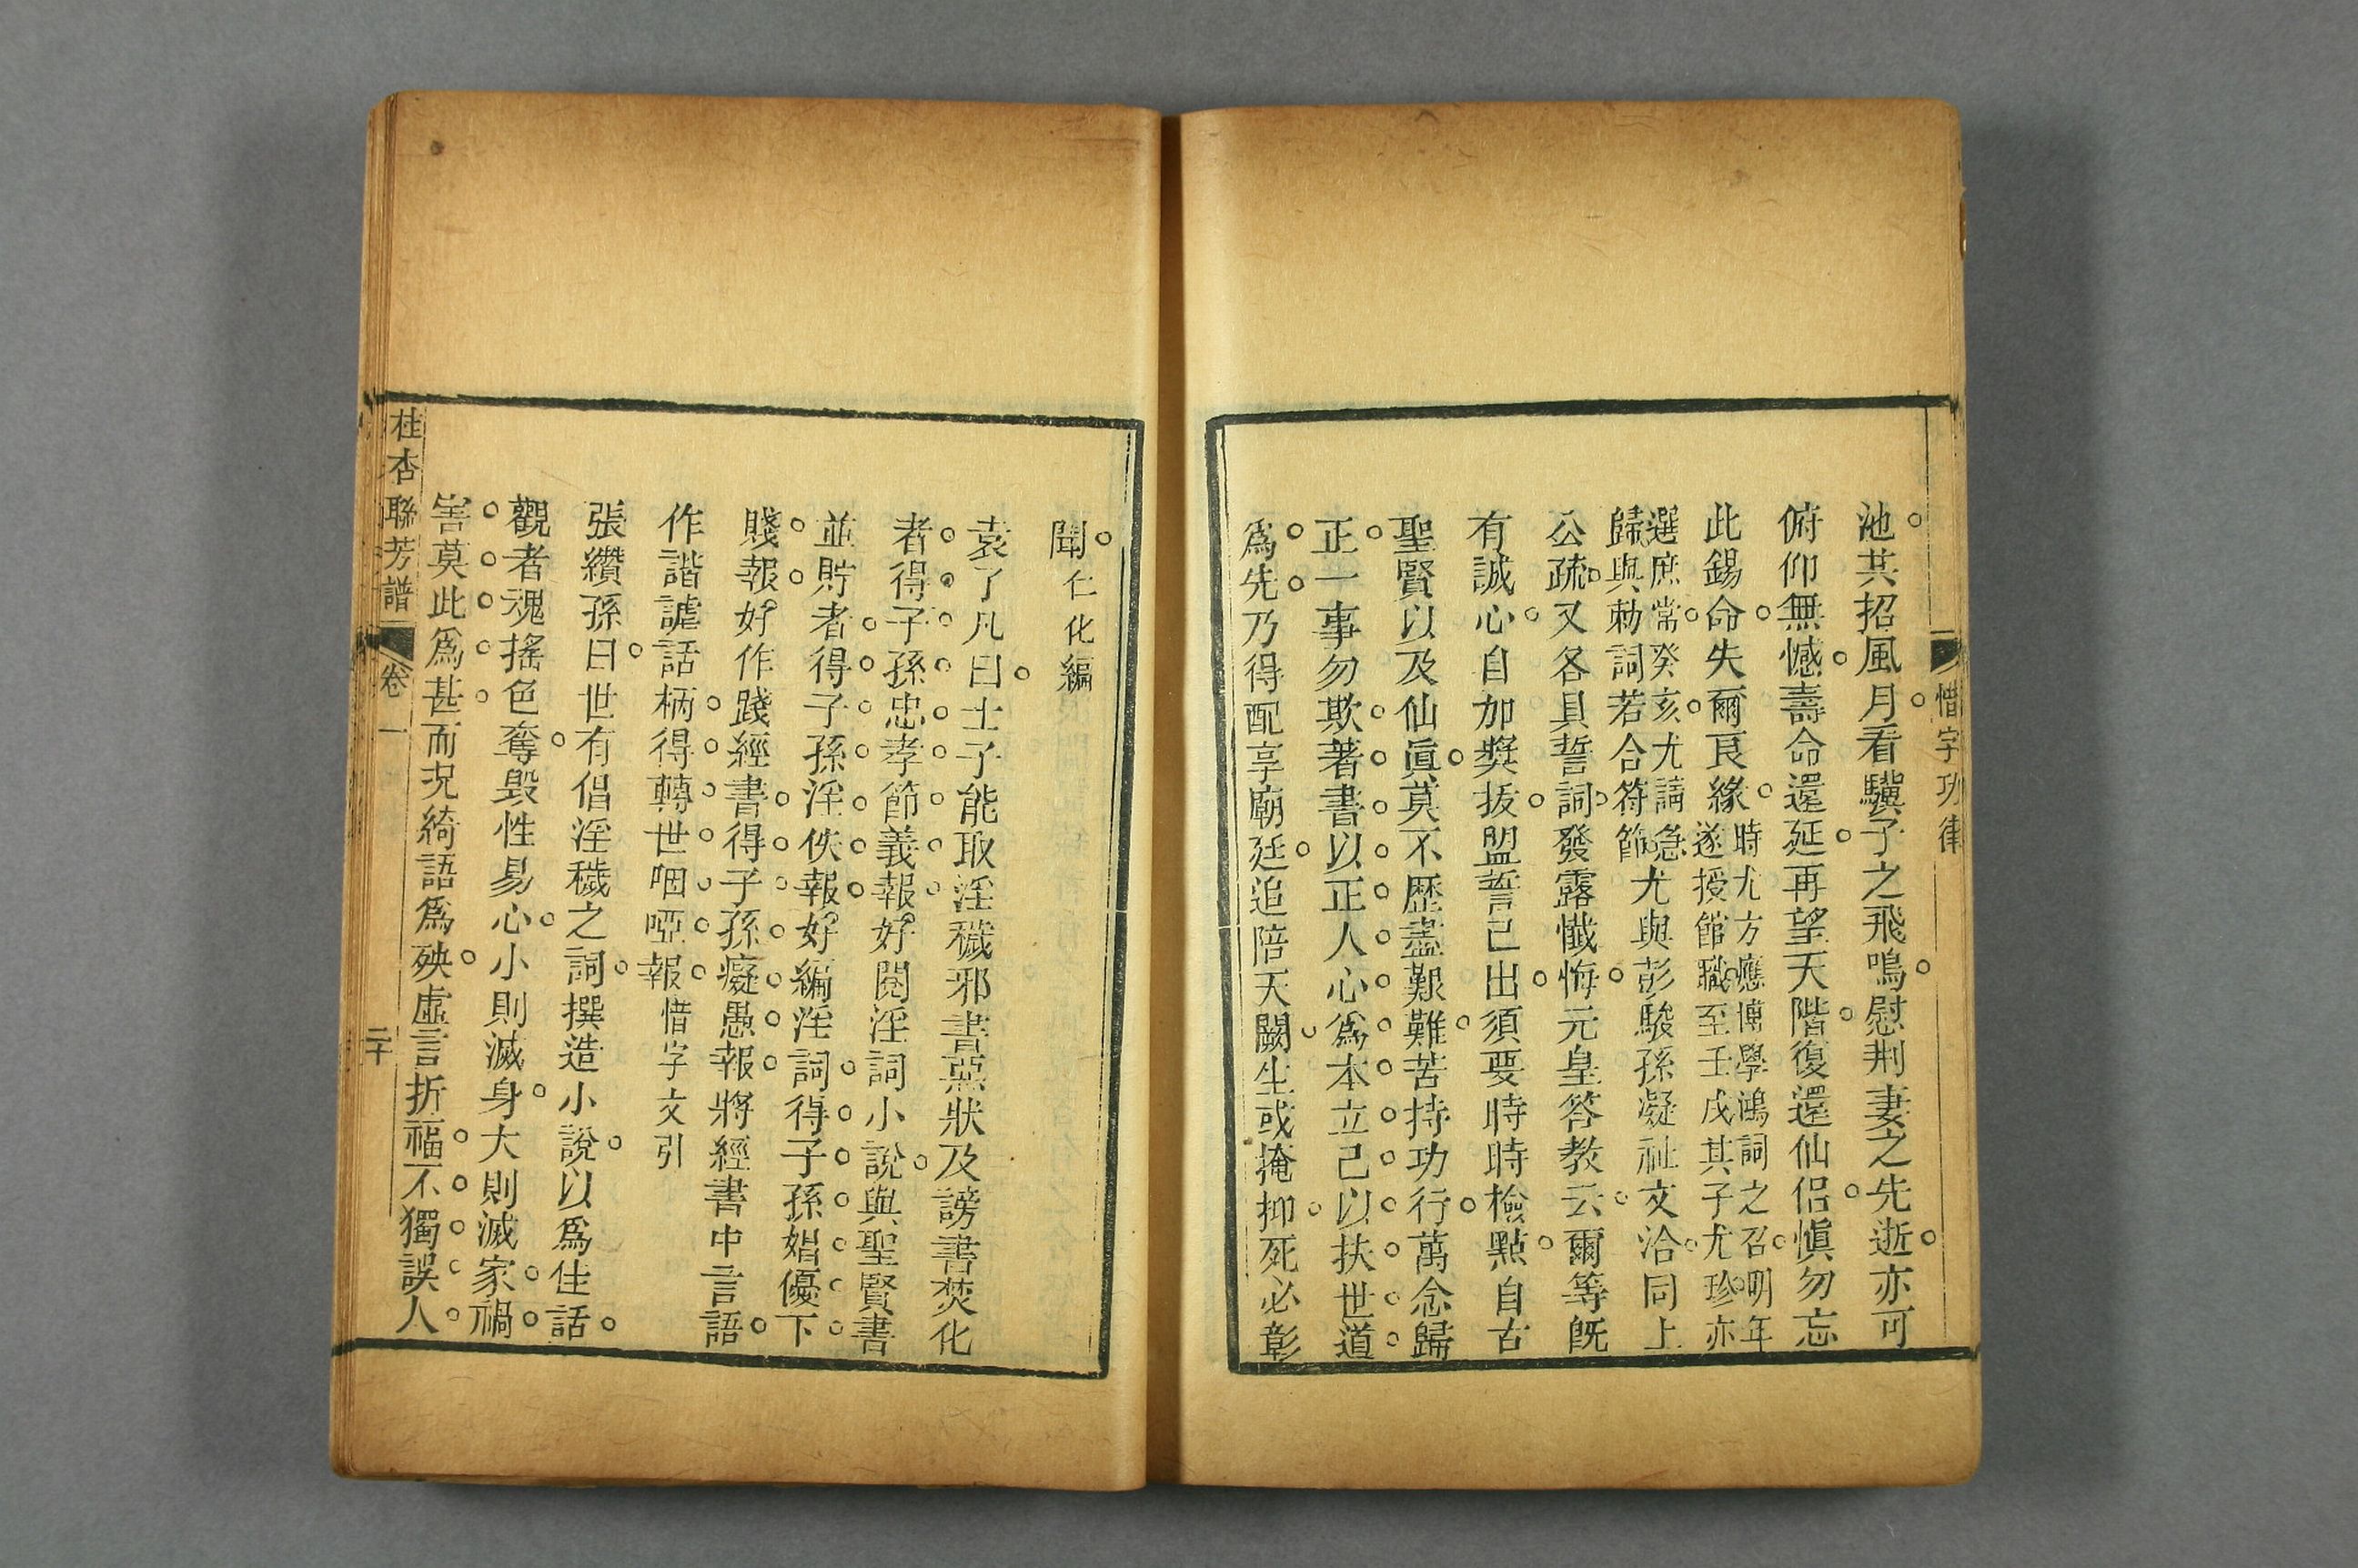 惜字功律
池共招風月看驥子之飛鳴慰荆妻之先逝亦可
俯仰無憾壽命還延再望天階復還仙侣愼勿忘
此錫命失爾良緣時尤方應博學鴻詞之召明年
遂授館職至壬戌其子尤珍亦
選庶常癸亥尤請急
歸與勅詞若合符節尤與彭駿孫凝祉文洽同上
公疏又各具誓詞發露懴悔元皇答教云爾等旣
有誠心自加奬拔盟誓己出須要時時檢點自古
聖賢以及仙眞莫不歴盡艱難苦持功行萬念歸
正一事勿欺著書以正人心爲本立己以扶世道
爲先乃得配享廟廷追陪天闕生或掩抑死必彰
聞仁化編
袁了凡曰士子能取淫穢邪書惡狀及謗書焚化
者得子孫忠孝節義報好閱淫詞小說與聖賢書
並貯者得子孫淫佚報好編淫詞得子孫娼優下
賤報好作踐經書得子孫癡愚報將經書中言語
作諧謔話柄得轉世喑啞報惜字文引
張纘孫曰世有倡淫穢之詞撰造小說以爲佳話
觀者魂搖色奪毁性易心小則滅身大則滅家禍
害莫此爲甚而况綺語爲殃虛言折福不獨誤人
桂杏聯芳譜 卷一 二十